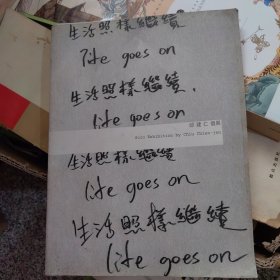 生活照樣繼續
life goes on
生活照樣繼續.
life goes on
邱建仁個展
Solo Exhibition by Chiu Chien-jen
生活照樣繼續
life goes on
生活照樣繼續
life goes on